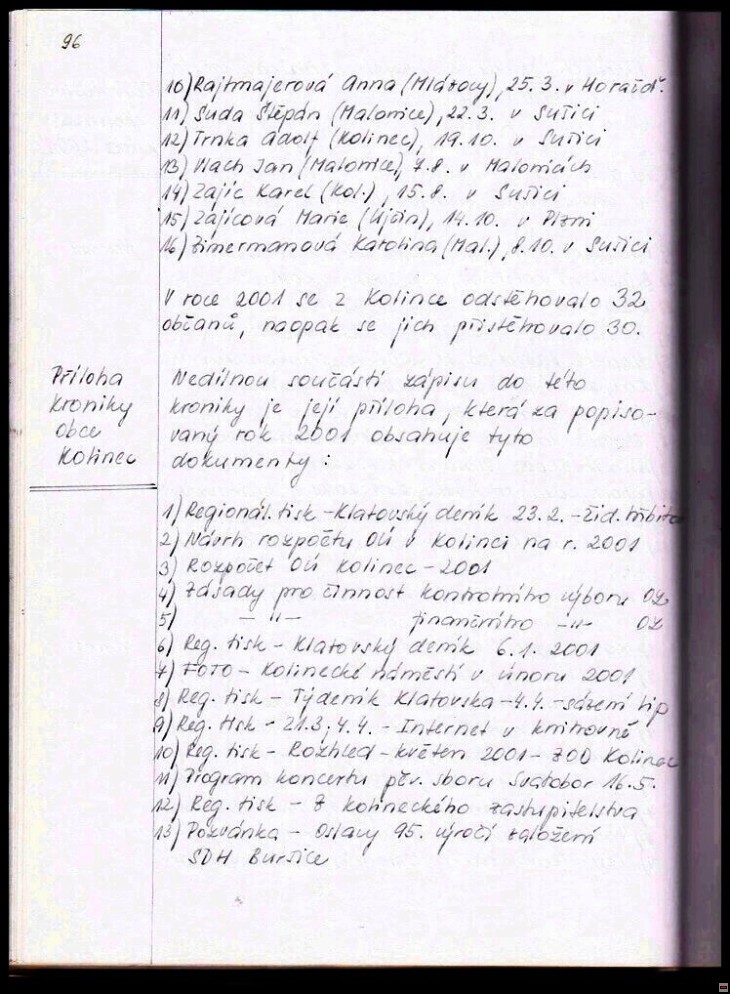 96
10) Rajtmajerová Anna (Mlázovy), 25.3. v Horažď.
11) Suda Štěpán (Malonice), 22.3. v Sušici
12) Trnka Adolf (Kolinec), 19.10. v Sušici
13) Vlach Jan (Malonice), 7.8. v Malonicích
14) Zajíc Karel (Kol.), 15.8. v Sušici
15) Zajícová Marie (Ujčín), 14.10. v Plzni
16) Zimermanová Karolina (Mal.), 8.10. v Sušici
V roce 2001 se z Kolince odstěhovalo 32
občanů, naopak se jich přistěhovalo 30.
Příloha
kroniky
obce
Kolinec
Nedílnou součástí zápisu do této
kroniky je její příloha, která za popiso-
vaný rok 2001 obsahuje tyto
dokumenty:
1) Regionál. tisk - Klatovský deník 23.2. - žid. hřbitov
2) Návrh rozpočtu OÚ v Kolinci na r. 2001
3) Rozpočet OÚ Kolinec - 2001
4) Zásady pro činnost kontrolního výboru OZ
5) -"- finančního -"- OZ
6) Reg. tisk - Klatovský deník 6.1. 2001
7) FOTO - Kolinecké náměstí v únoru 2001
8) Reg. tisk - Týdeník Klatovska - 4.4. - sázení lip
9) Reg. tisk - 21.3, 4.4. - Internet v knihovně
10) Reg. tisk - Rozhled - květen 2001 - ZOD Kolinec
11) Program koncertu pěv. sboru Svatobor 16.5.
12) Reg. tisk - Z kolineckého zastupitelstva
13) Pozvánka - Oslavy 95. výročí založení
SDH Buršice